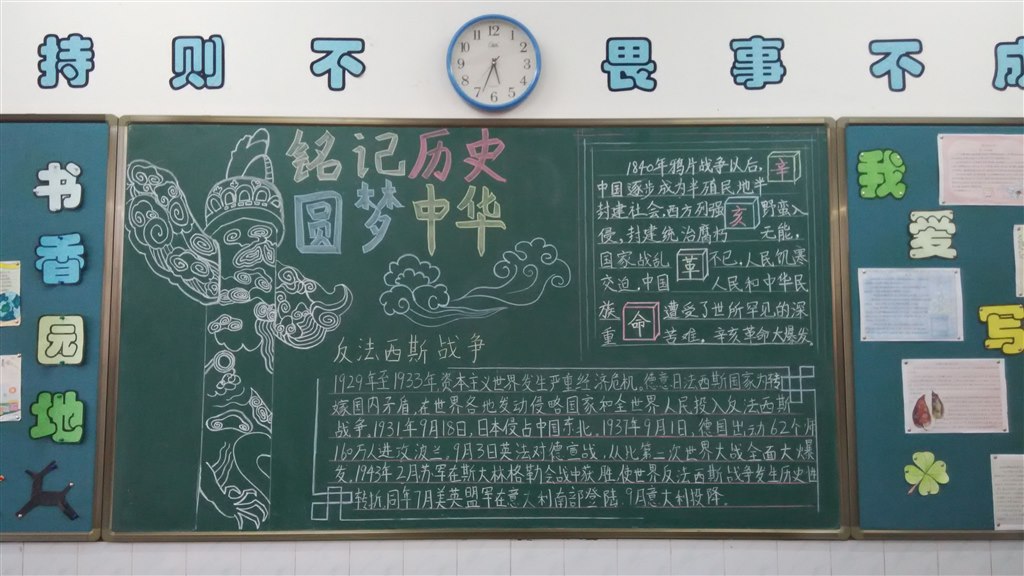 持则不
畏事不成
12
1
2
3
4
5
6
7
8
9
10
11
书香园地
铭记历史
圆梦中华
1840年鸦片战争以后，辛
中国逐步成为半殖民地半
封建社会，西方列强亥野蛮入
侵，封建统治腐朽 无能，
国家战乱革不已，人民饥寒
交迫，中国 人民和中华民
族命遭受了世所罕见的深
重 苦难，辛亥革命大爆发
反法西斯战争
1929年至1933年资本主义世界发生严重经济危机。德意日法西斯国家为转
嫁国内矛盾，在世界各地发动侵略国家和全世界人民投入反法西斯
战争，1931年9月18日，日本侵占中国东北，1939年9月1日，德国出动62个师
160万人进攻波兰，9月3日英法对德宣战，从此第二次世界大战全面大爆
发，1943年2月苏军在斯大林格勒会战中获胜，使世界反法西斯战争发生历史性
转折同年7月美英盟军在意大利南部登陆 9月意大利投降。
我爱写